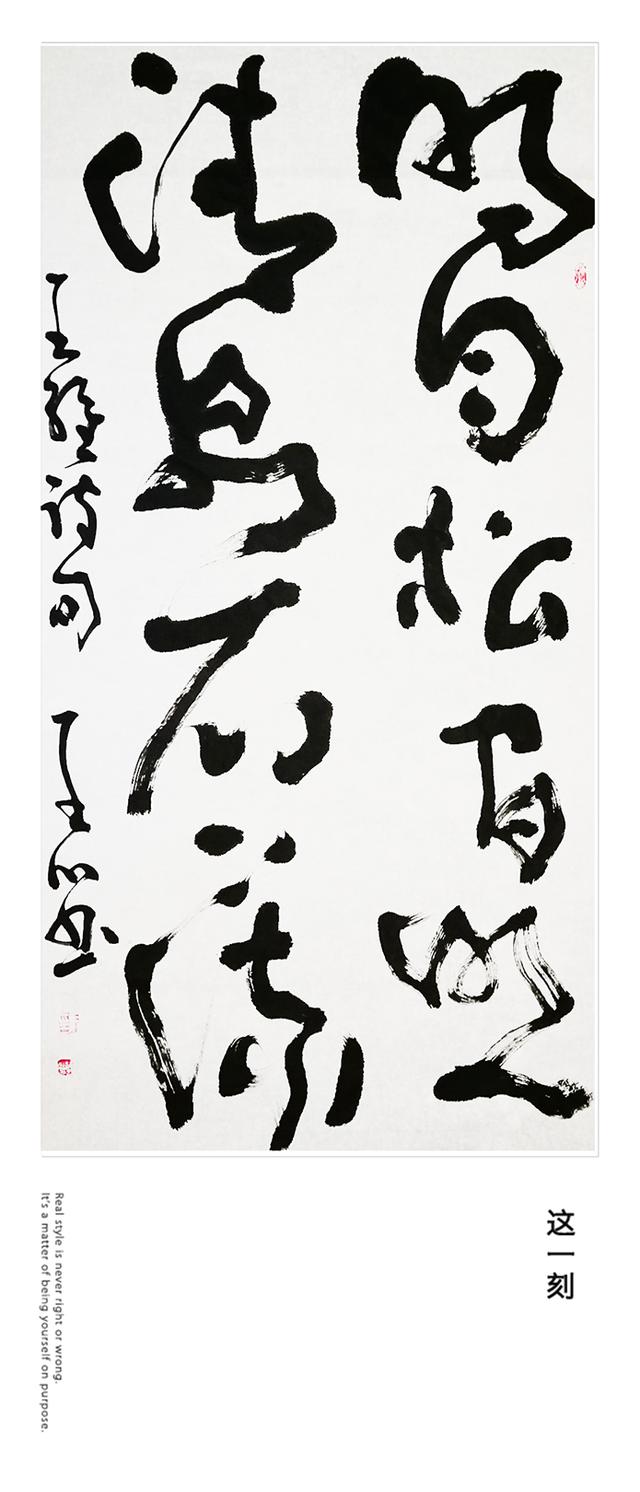 明月松間照
清泉石上流
王維詩句
这一刻
Real style is never right or wrong.
It's a matter of being yourself on purpose.